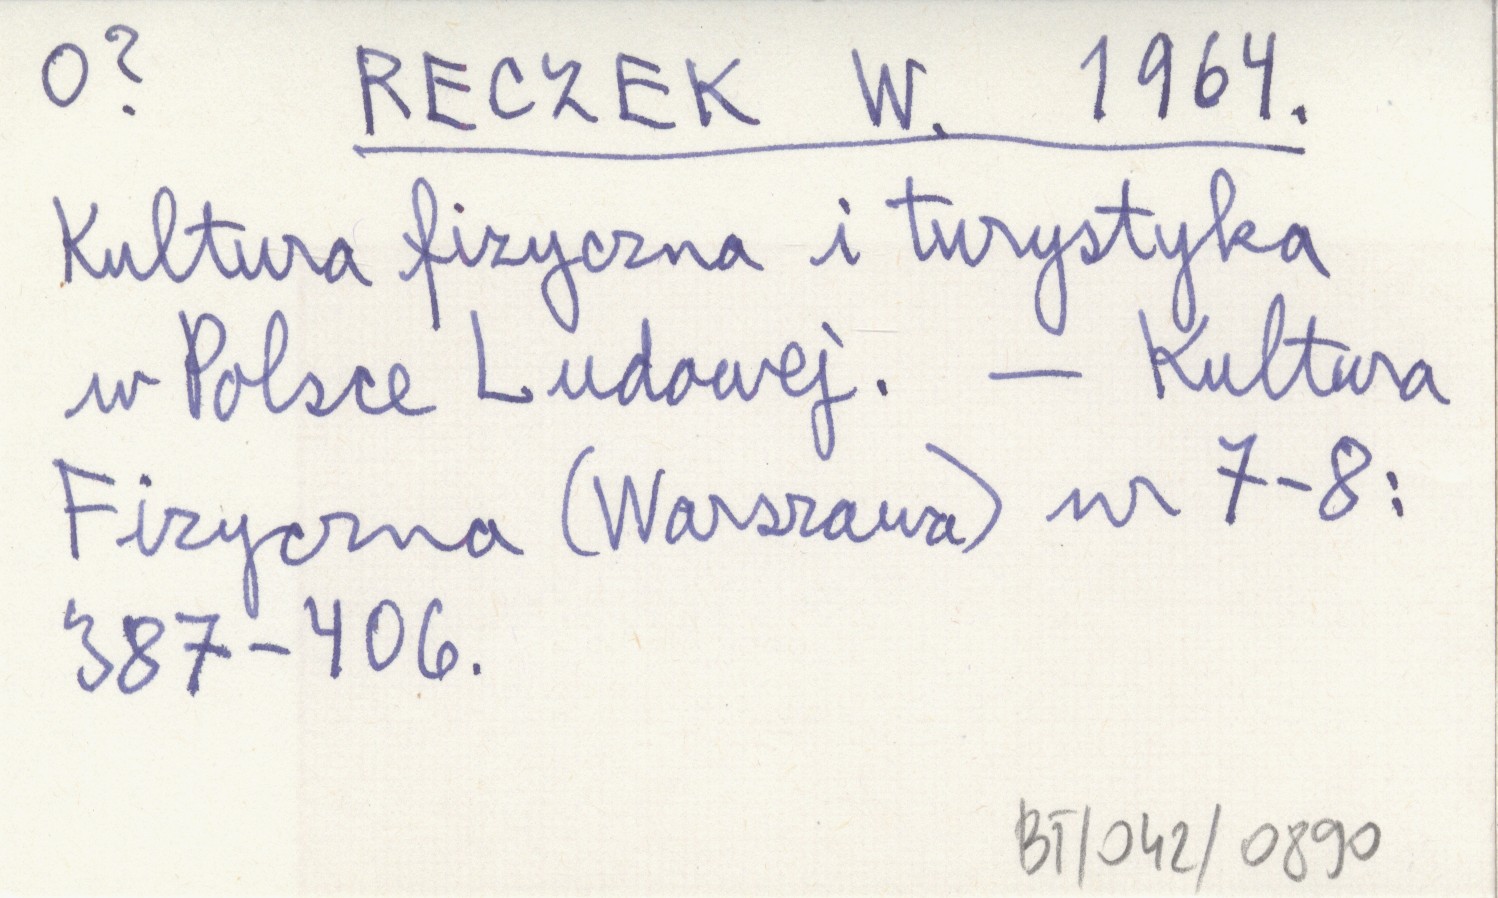 O? RECZEK W. 1964.
Kultura fizyczna i turystyka
w Polsce Ludowej. — Kultura
Fizyczna (Warszawa) nr 7-8:
387-406.
BT/042/0890